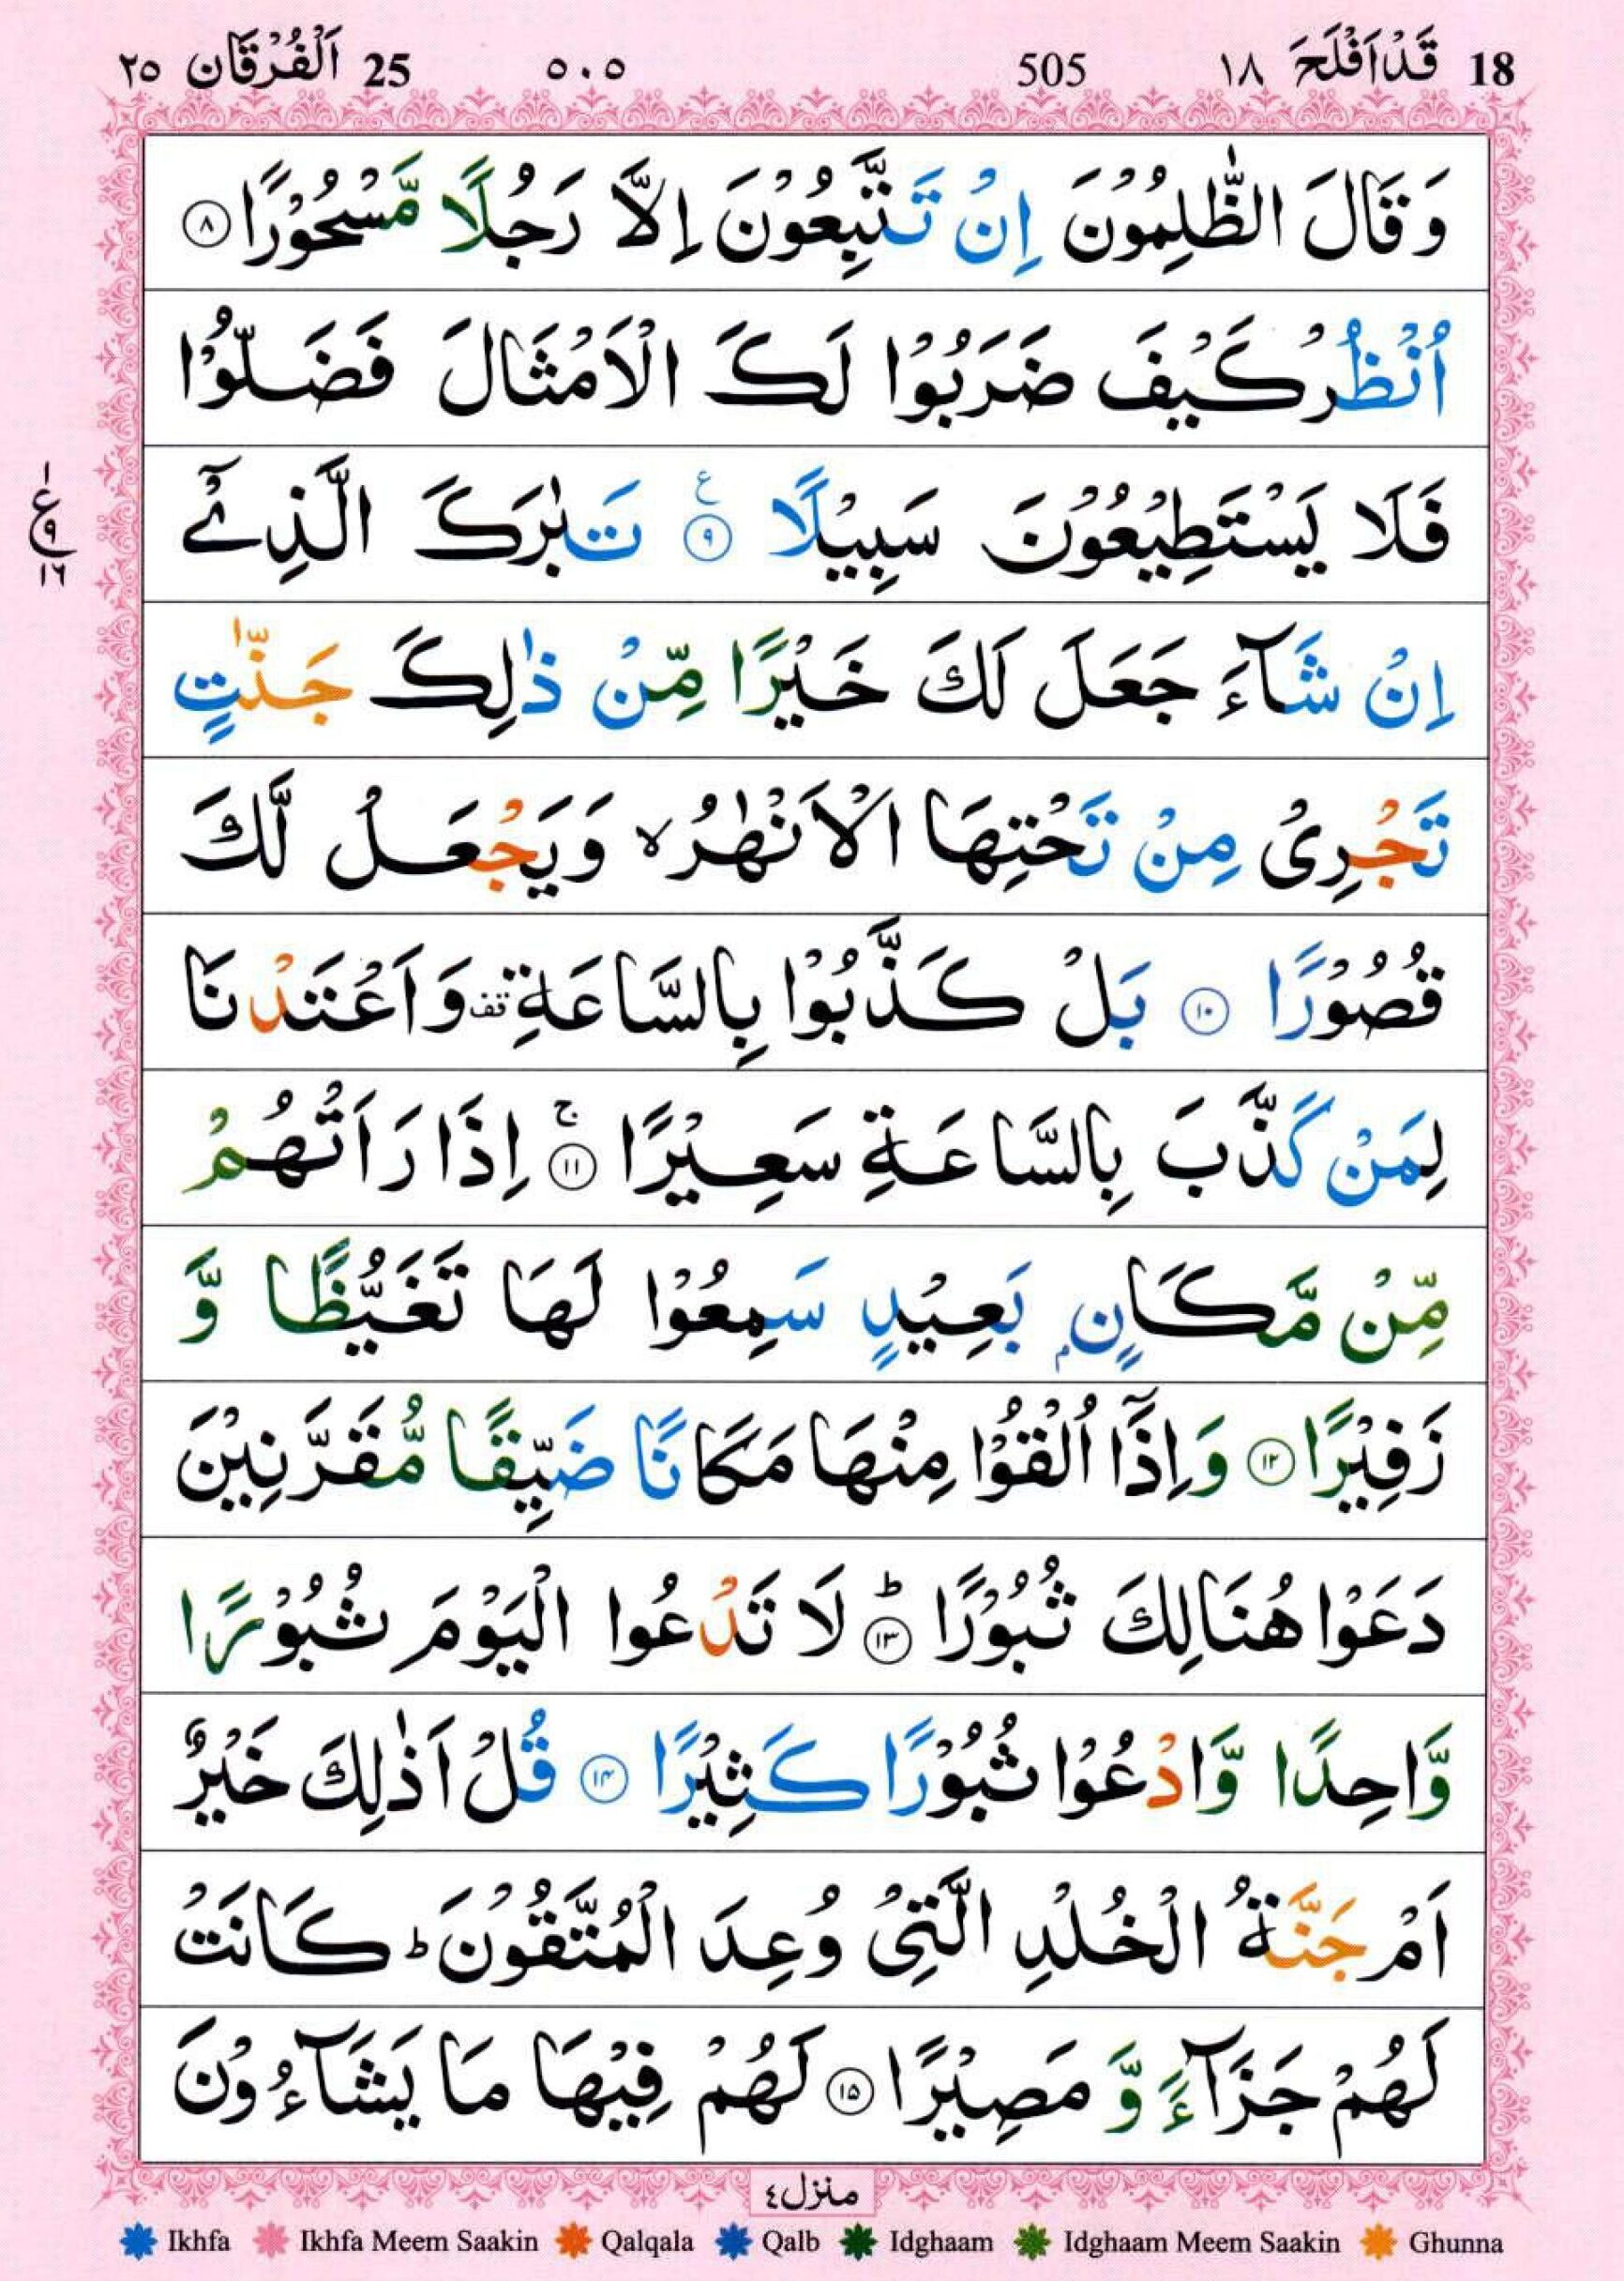 18 قَدْ اَفْلَحَ ١٨ 505 ٥٠٥ 25 اَلْفُرْقَان ٢٥
وَ قَالَ الظّٰلِمُوْنَ اِنْ تَتَّبِعُوْنَ اِلَّا رَجُلًا مَّسْحُوْرًا ۝٨
اُنْظُرْ كَيْفَ ضَرَبُوْا لَكَ الْاَمْثَالَ فَضَلُّوْا
فَلَا يَسْتَطِيْعُوْنَ سَبِيْلًا ۝٩ ع تَبٰرَكَ الَّذِيْۤ
ا ع ٩ ١٦
اِنْ شَآءَ جَعَلَ لَكَ خَيْرًا مِّنْ ذٰلِكَ جَنّٰتٍ
تَجْرِيْ مِنْ تَحْتِهَا الْاَنْهٰرُ ۙ وَيَجْعَلْ لَّكَ
قُصُوْرًا ۝١٠ بَلْ كَذَّبُوْا بِالسَّاعَةِ قف وَاَعْتَدْنَا
لِمَنْ كَذَّبَ بِالسَّاعَةِ سَعِيْرًا ۝١١ ج اِذَا رَاَتْهُمْ
مِّنْ مَّكَانٍۭ بَعِيْدٍ سَمِعُوْا لَهَا تَغَيُّظًا وَّ
زَفِيْرًا ۝١٢ وَاِذَآ اُلْقُوْا مِنْهَا مَكَانًا ضَيِّقًا مُّقَرَّنِيْنَ
دَعَوْا هُنَالِكَ ثُبُوْرًا ۝١٣ ط لَا تَدْعُوا الْيَوْمَ ثُبُوْرًا
وَّاحِدًا وَّادْعُوْا ثُبُوْرًا كَثِيْرًا ۝١٤ قُلْ اَذٰلِكَ خَيْرٌ
اَمْ جَنَّةُ الْخُلْدِ الَّتِيْ وُعِدَ الْمُتَّقُوْنَ ؕ كَانَتْ
لَهُمْ جَزَآءً وَّ مَصِيْرًا ۝١٥ لَهُمْ فِيْهَا مَا يَشَآءُوْنَ
منزل ٤
Ikhfa Ikhfa Meem Saakin Qalqala Qalb Idghaam Idghaam Meem Saakin Ghunna